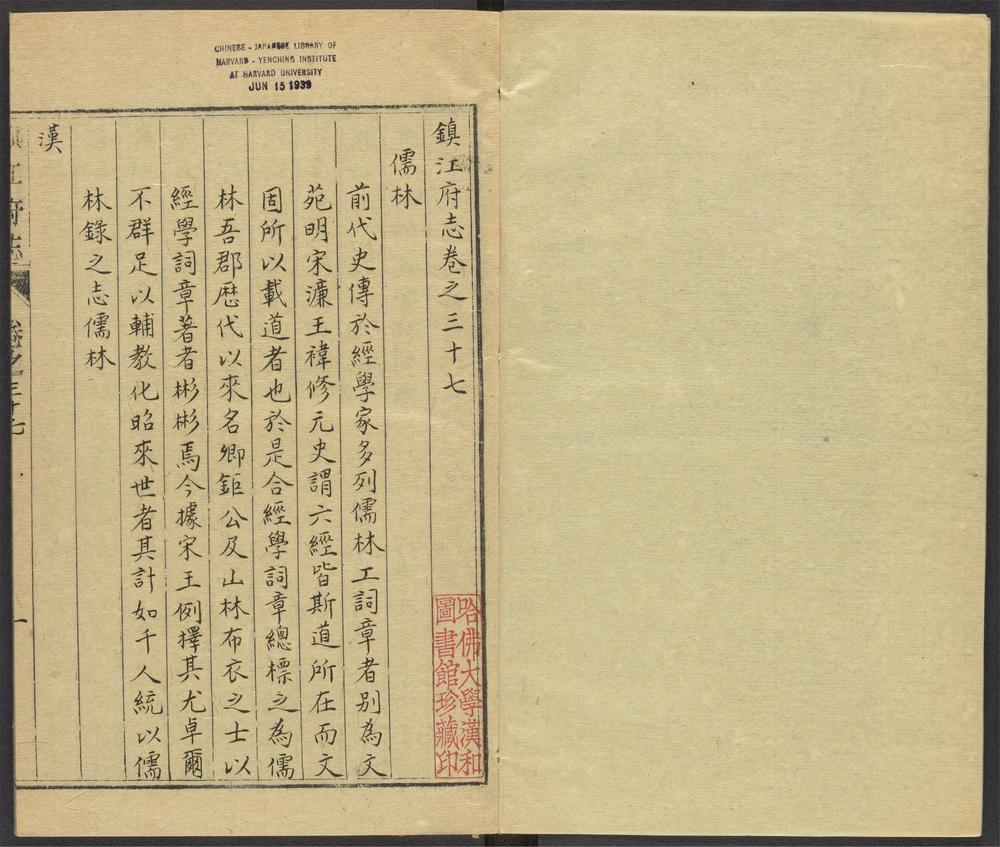 CHINESE - JAPANESE LIBRARY OF
HARVARD - YENCHING INSTITUTE
AT HARVARD UNIVERSITY
JUN 15 1939
鎮江府志卷之三十七
儒林
前代史傳於經學家多列儒林工詞章者别為文
苑明宋濂王禕修元史謂六經皆斯道所在而文
固所以載道者也於是合經學詞章總標之為儒
林吾郡歴代以來名卿鉅公及山林布衣之士以
經學詞章著者彬彬焉今據宋王例擇其尤卓爾
不群足以輔教化昭來世者其計如千人統以儒
林錄之志儒林
漢
鎮江府志
卷之三十七
一
哈佛大學漢和
圖書館珍藏印